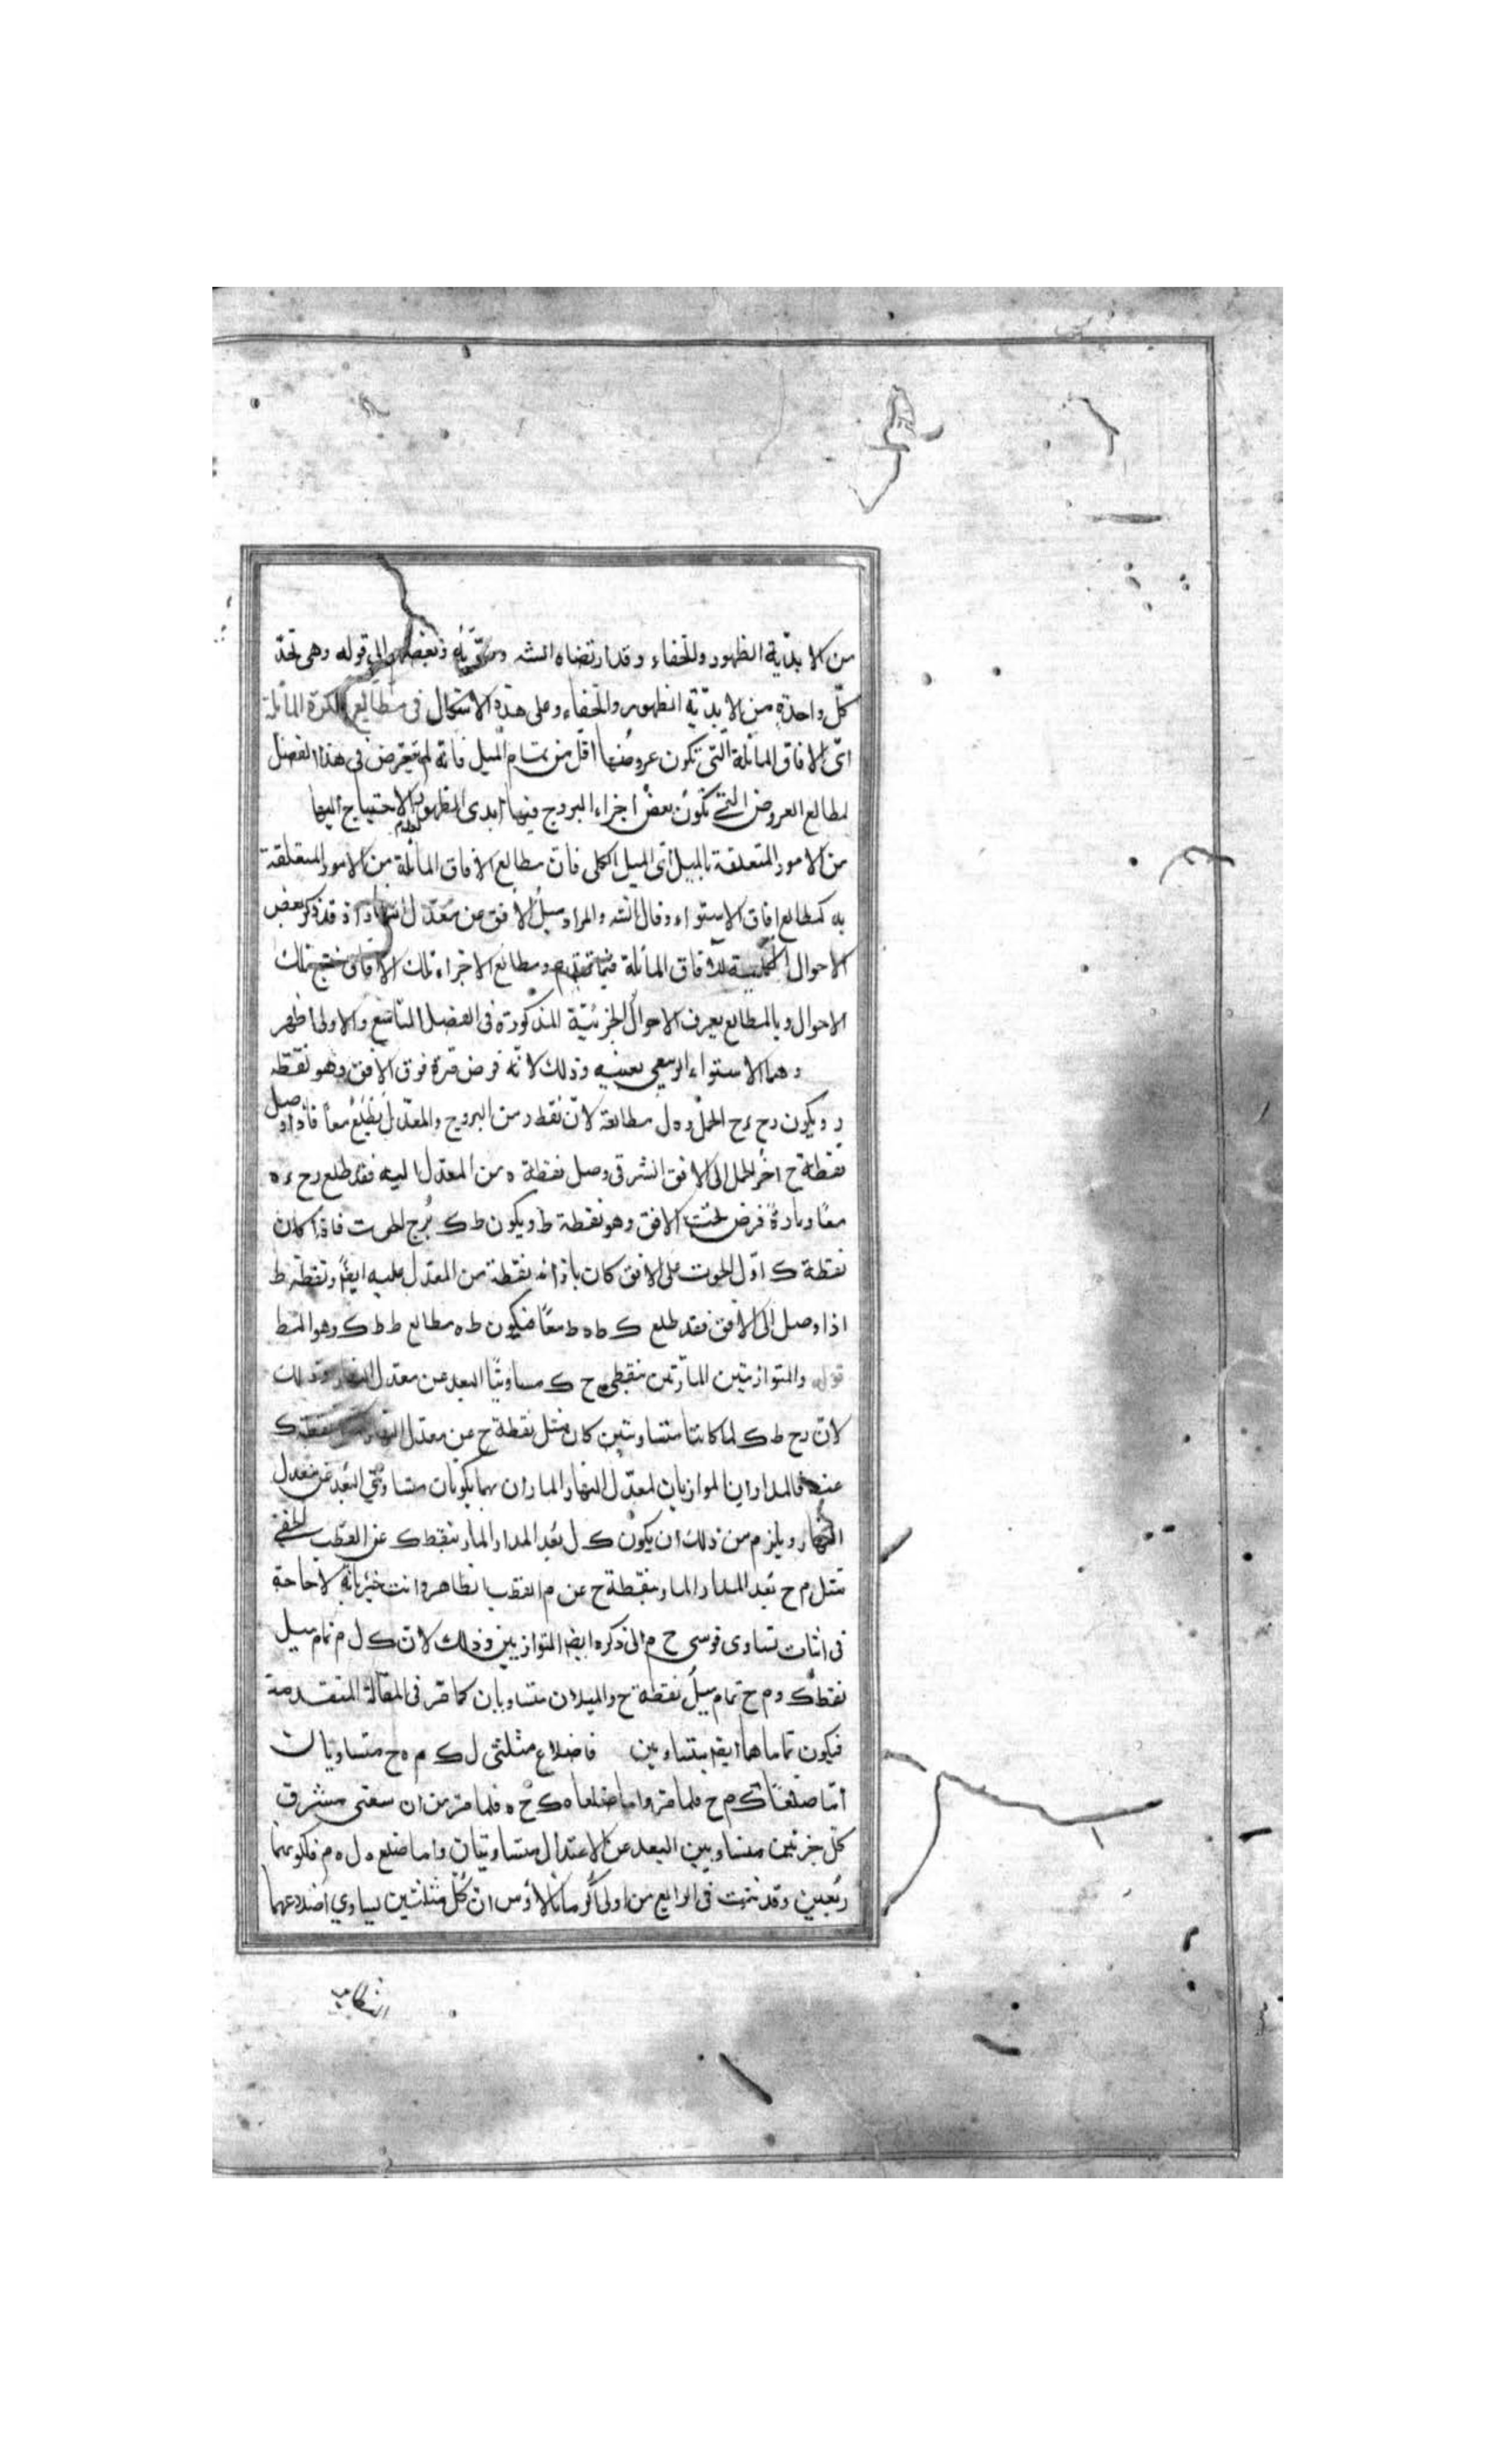 من الابدية الظهور والخفاء وقد ارتضاه الشه الى قوله وهى تحد
كل واحدة من الابدية الظهور والخفاء وعلى هذه الاشكال فى مطالع الكرة المائلة
اى الافاق المائلة التى تكون عروضها اقل من تمام الميل فانه لم يتعرض فى هذا الفصل
لمطالع العروض التى تكون بعض اجزاء البروج فيها ابدى الظهور لعدم الاحتياج اليها
من الامور المتعلقة بالميل اى الميل الكلى فان مطالع الافاق المائلة من الامور المتعلقة
به كمطالع افاق الاستواء وقال الشه والمراد ميل الافق عن معدل النهار اذ قد ذكر بعض
الاحوال الكلية للافاق المائلة فيما تقدم ومطالع الاجزاء تلك الافاق تلك
الاحوال وبالمطالع يعرف الاحوال الجزئية المذكورة فى الفصل التاسع والاولى اظهر
وهما الاستواء الربيعى بعينه وذلك لانه فرض مرة فوق الافق وهو نقطة
ر ويكون رح ءح الحمل وه ل مطالعة لان نقطة ر من البروج والمعدل تطلع معا فاذا وصل
نقطة ح اخر الحمل الى الافق الشرقى وصل نقطة ه من المعدل اليه فقد طلع رح ءه
معا وتارة فرض تحت الافق وهو نقطة ط ويكون ط ك برج الحوت فاذا كان
نقطة ك اول الحوت على الافق كان بازائه نقطة من المعدل عليه ايضا ونقطة ط
اذا وصل الى الافق فقد طلع ك ط ه ط معا فيكون ط ه مطالع ط ط ك وهو المط
قوله والمتوازيتين المارتين بنقطتى ح ك مساويتا البعد عن معدل النهار وذلك
لان رح ط ك لما كانتا متساويتين كان مثل نقطة ح عن معدل النهار نقطة ك
عنه فالمداران الموازيان لمعدل النهار الماران بهما يكونان متساويى البعد عن معدل
النهار ويلزم من ذلك ان يكون ك ل بعد المدار المار بنقطة ك عن القطب الخفى
مثل م ح بعد المدار المار بنقطة ح عن م القطب الظاهر وانت خبير بانه لا حاجة
فى اثبات تساوى قوسى ح م الى ذكره ايضا المتوازيين وذلك لان ك ل م تمام ميل
نقطة ك وم ح تمام ميل نقطة ح والميلان متساويان كما مر فى المقالة المتقدمة
فيكون تماماهما ايضا متساويين فاضلاع مثلثى ل ك م ه ح متساويات
اما ضلعا ك م ح فلما مر واما ضلعا ه ك ح ه فلما مر من ان سعتى مشرق
كل جزئين متساويين البعد عن الاعتدال متساويتان واما ضلع ه ل ه م فلكونهما
ربعين وقد ثبت فى الرابع من اولى اكر مانالاوس ان كل مثلثين يساوى اضلاعهما